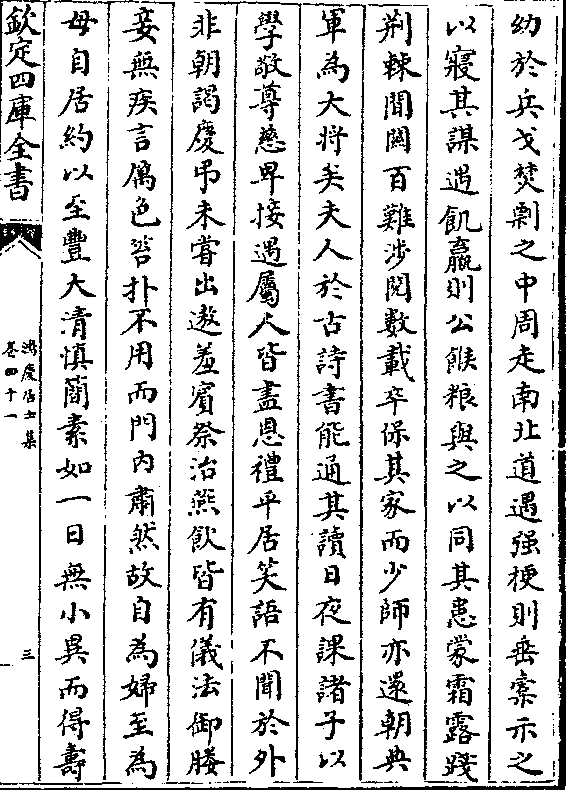 幼於兵戈焚剽之中周走南北道遇强梗則垂橐示之
以寢其謀遇飢羸則公餱粮與之以同其患蒙霜露踐
荆棘間關百難涉閱數載卒保其家而少師亦還朝典
軍為大将矣夫人於古詩書能通其讀日夜課諸子以
學敬尊慈卑接遇屬人皆盡恩禮平居笑語不聞於外
非朝謁慶弔未嘗出遨羞賓祭治燕飲皆有儀法御媵
妾無疾言厲色笞扑不用而門内肅然故自為婦至為
母自居約以至豐大清慎簡素如一日無小異而得壽
欽定四庫全書
鴻慶居士集
卷四十一
三